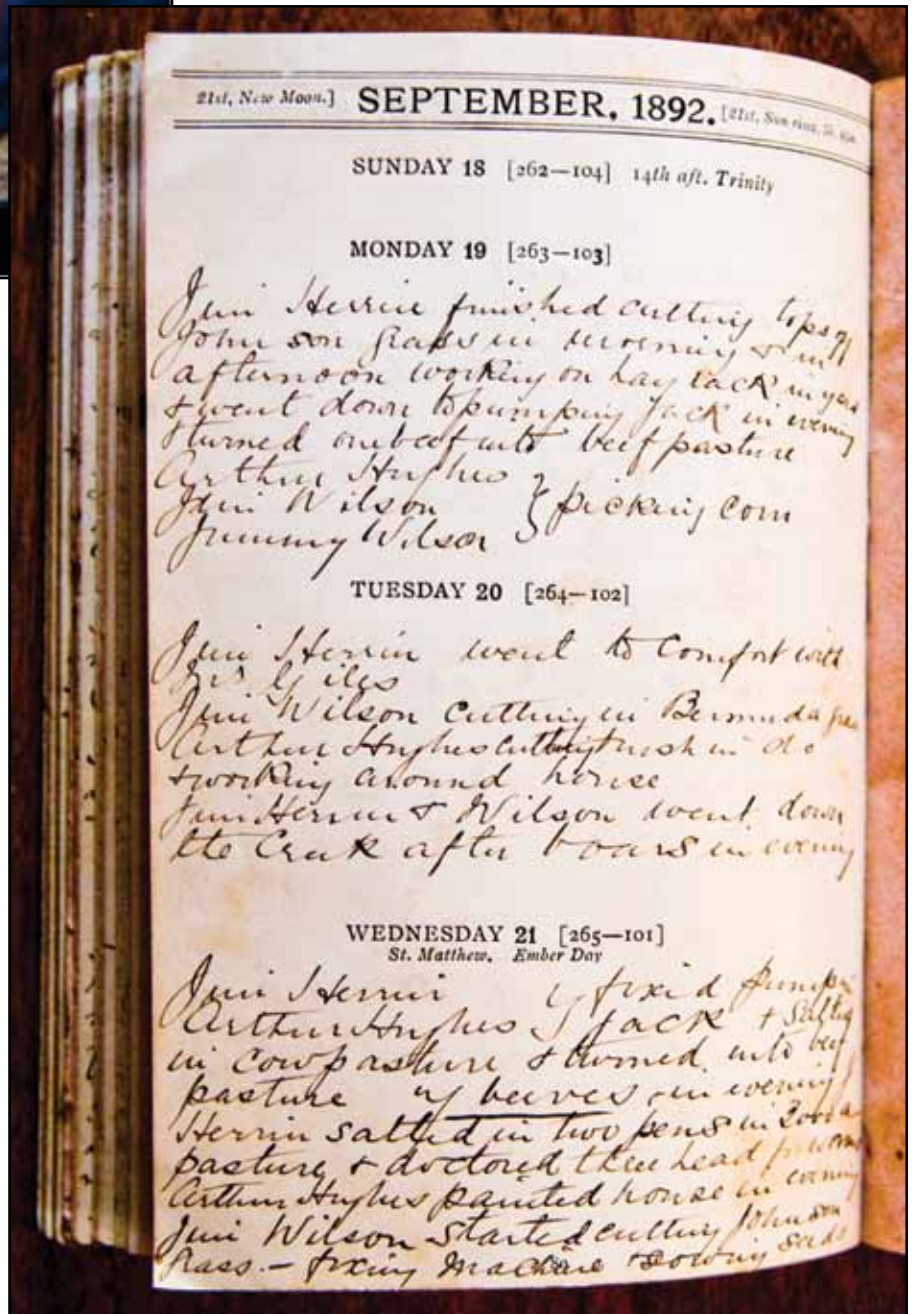 21st, New Moon.] SEPTEMBER, 1892. [21st, Sun rises,
SUNDAY 18 [262—104] 14th aft. Trinity
MONDAY 19 [263—103]
Jim Herrin finished cutting tops of
Johnson grass in morning & in
afternoon working on hay rack in yard
& went down to pumping jack in evening
& turned one beef into beef pasture
Arthur Hughes
Jim Wilson } picking corn
Jimmy Wilson
TUESDAY 20 [264—102]
Jim Herrin went to Comfort with
Giles
Jim Wilson cutting in Bermuda gra
Arthur Hughes cutting in do
& working around house
Jim Herrin & Wilson went down
the Creek after boars in evening
WEDNESDAY 21 [265—101]
St. Matthew. Ember Day
Jim Herrin } fixed pumpin
Arthur Hughes } jack & salted
in cow pasture & turned into beef
pasture beeves in evening
Herrin salted in two pens in
pasture & doctored three head for worms
Arthur Hughes painted house in evening
Jim Wilson started cutting Johnson
grass — fixing machine & sowing seeds